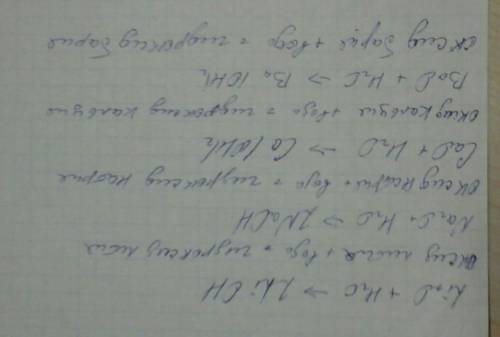 Li₂O + H₂O → 2LiOH
оксид лития + вода = гидроксид лития
Na₂O + H₂O → 2NaOH
оксид натрия + вода = гидроксид натрия
CaO + H₂O → Ca(OH)₂
оксид кальция + вода = гидроксид кальция
BaO + H₂O → Ba(OH)₂
оксид бария + вода = гидроксид бария